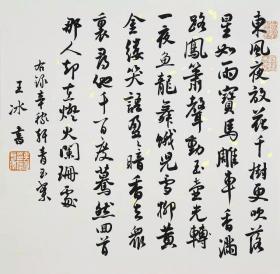 東風夜放花千樹更吹落
星如雨寶馬雕車香滿
路鳳簫聲動玉壺光轉
一夜魚龍舞蛾兒雪柳黃
金縷笑語盈盈暗香去眾
裏尋他千百度驀然回首
那人却在燈火闌珊處
右録辛稼軒青玉案
王冰書